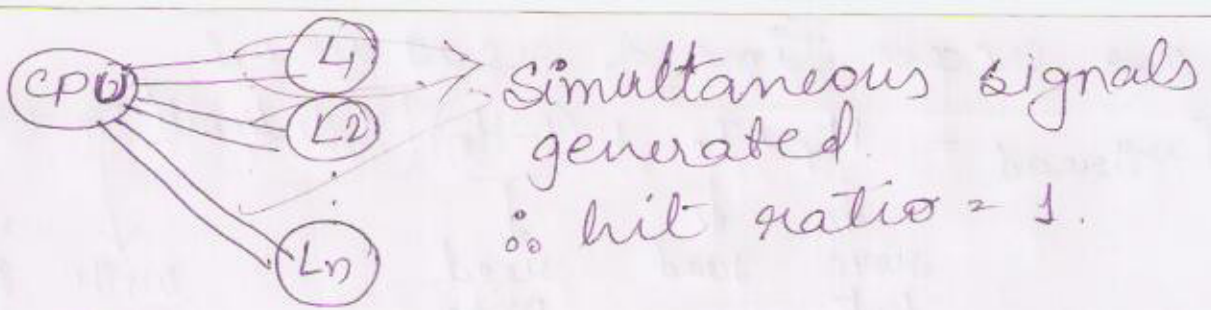 CPU
L1
L2
Ln
Simultaneous signals
generated.
∴ hit ratio = 1.